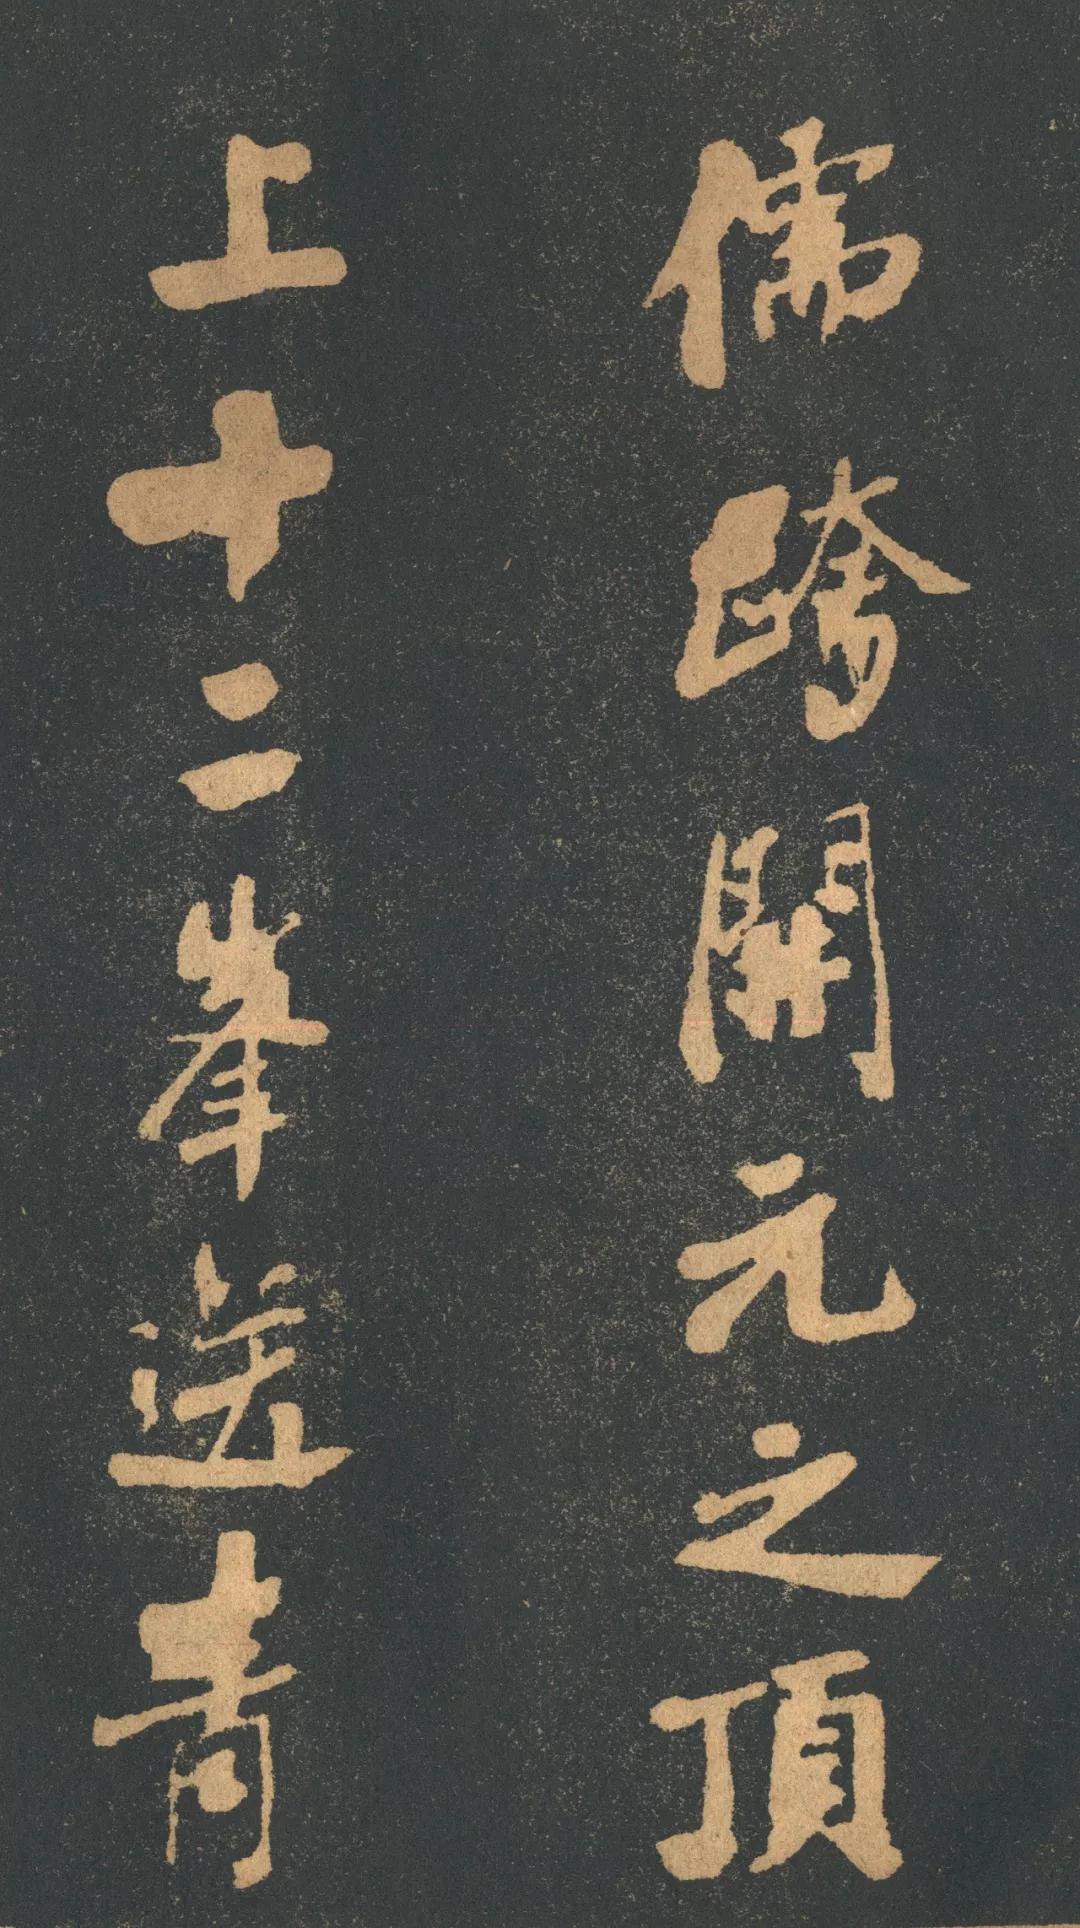 儒跨開元之頂
上十二峯送青